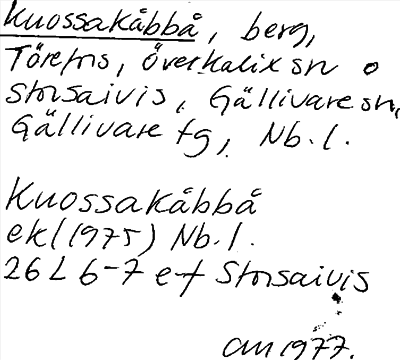 Kuossakåbbå, berg,
Törefors, Överkalix sn o
Storsaivis, Gällivare sn,
Gällivare tg, Nb. l.
Kuossakåbbå
ek (1975) Nb. l.
26 L 6-7 e-f Storsaivis
am 1977.